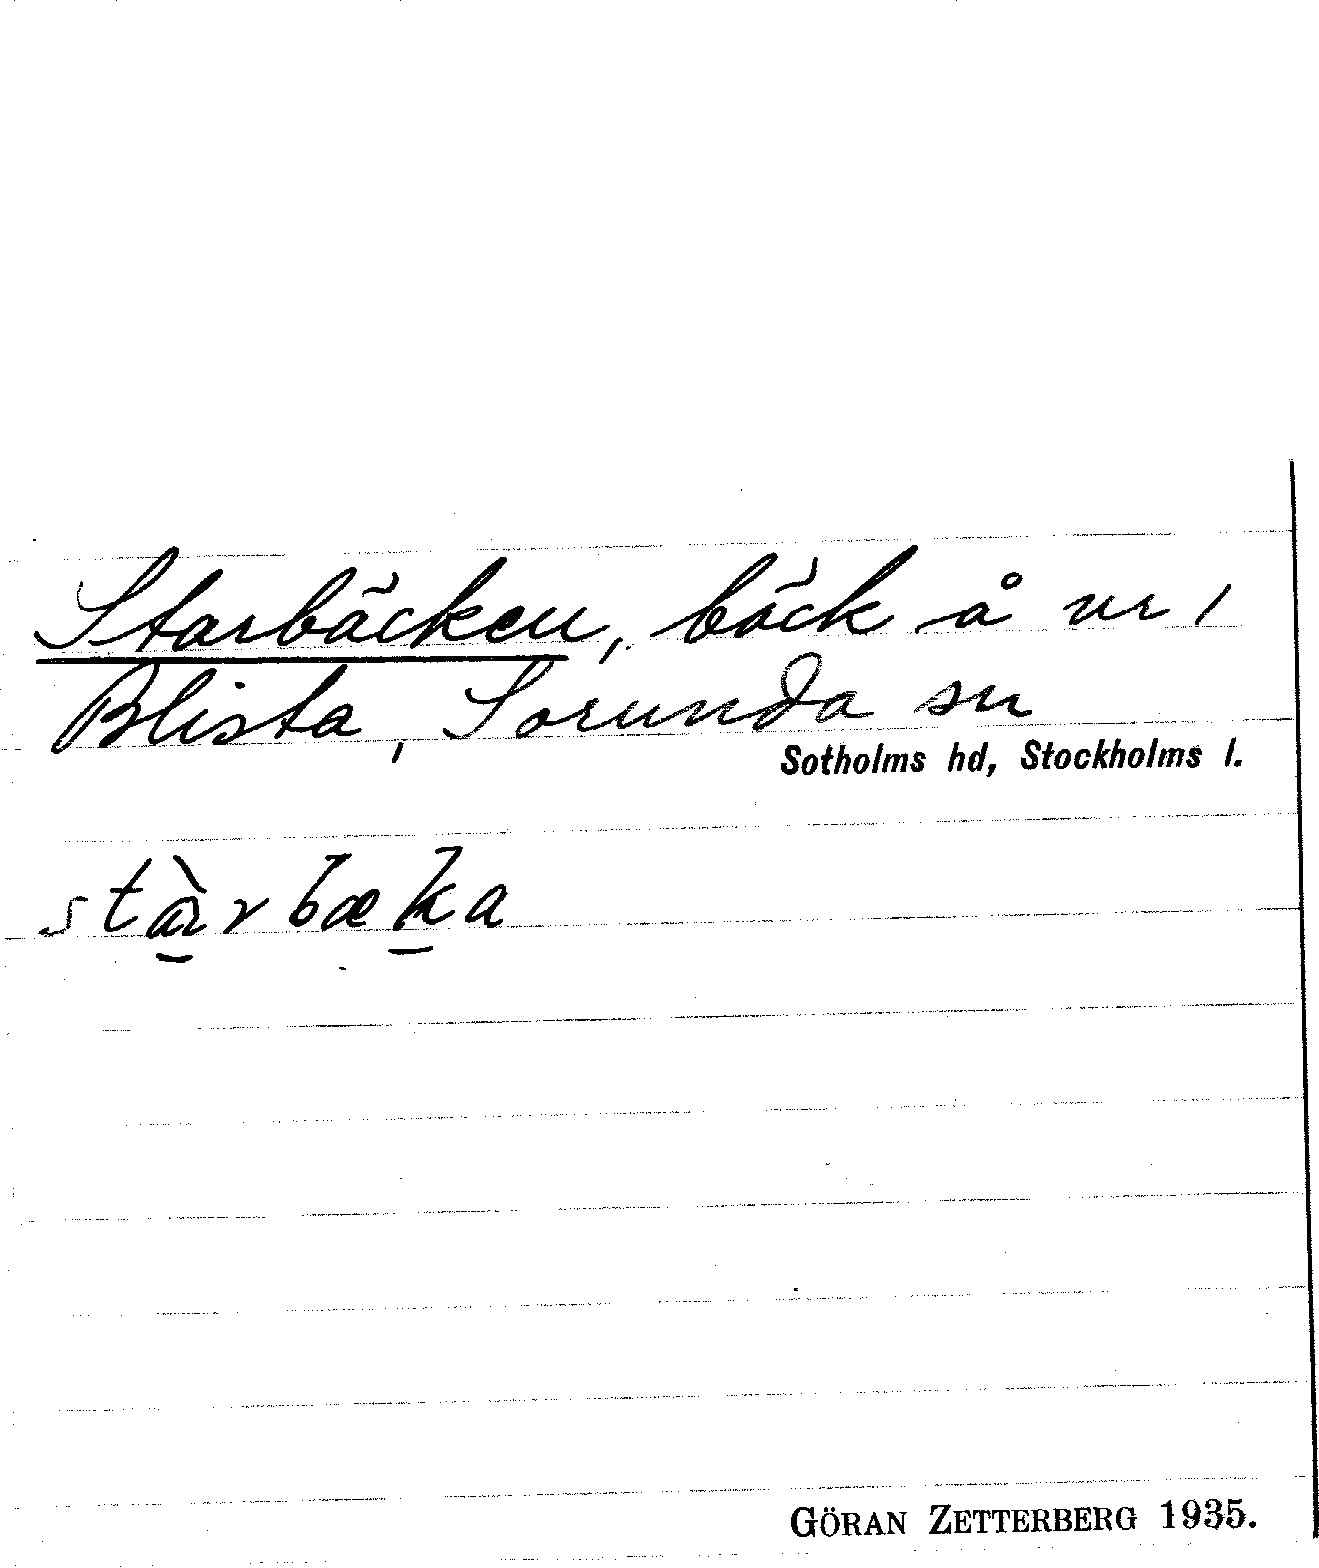 Starbäcken, bäck å nr 1
Blista, Sorunda sn
Sotholms hd, Stockholms l.
stàrbæka
GÖRAN ZETTERBERG 1935.